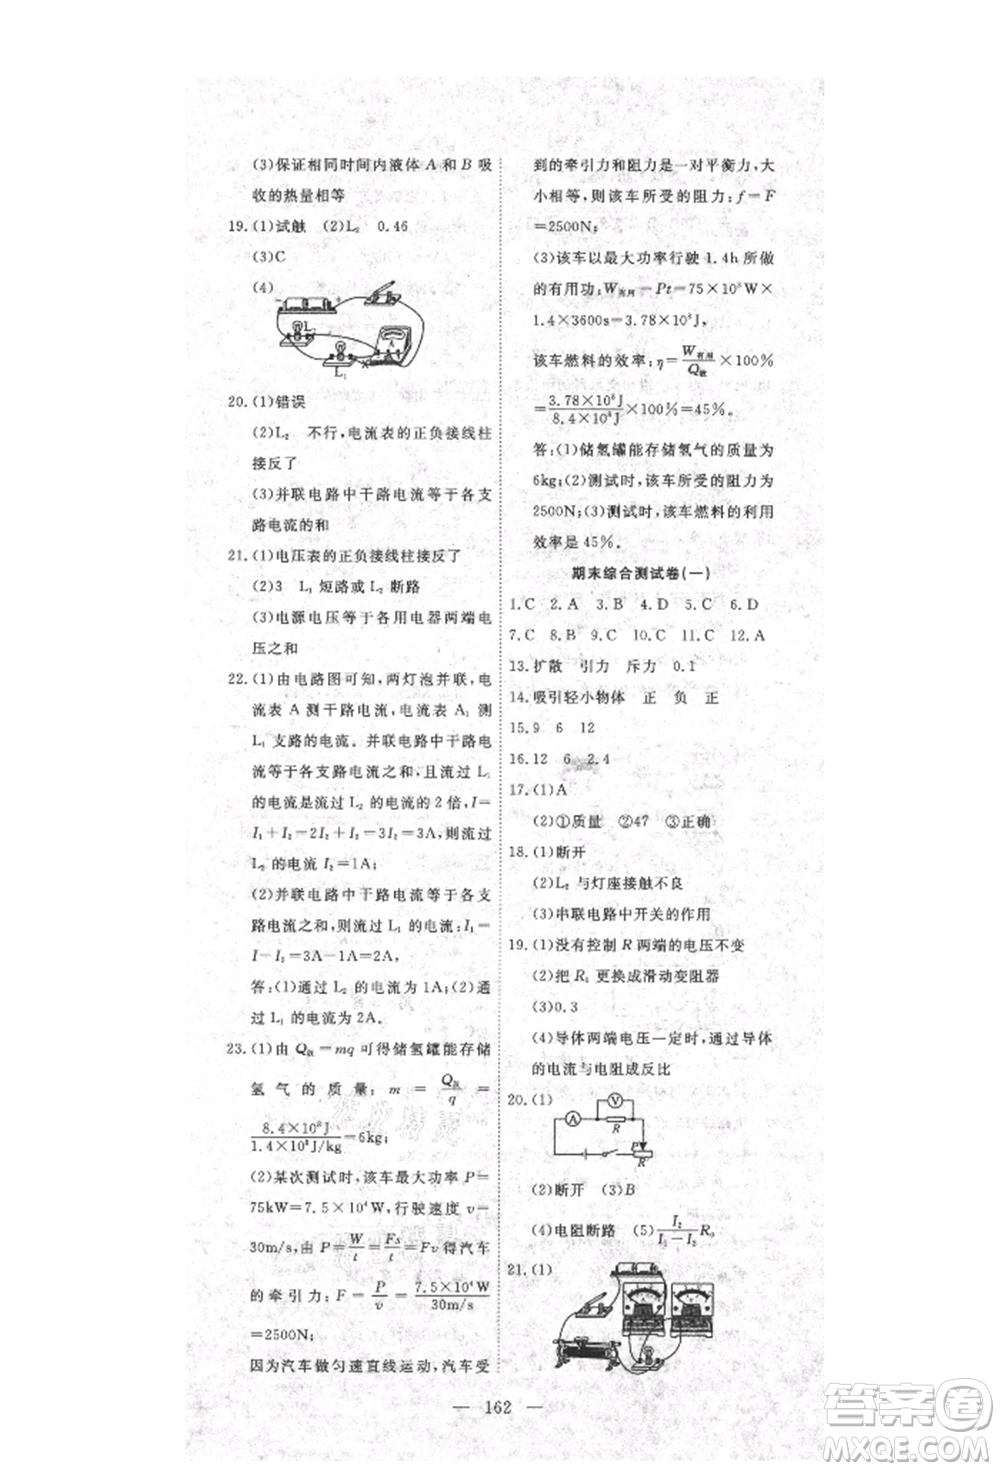 (3)保证相同时间内液体 A 和 B 吸
收的热量相等
19.(1)试触 (2)L₂ 0.46
(3)C
(4)
L₂
L₁
A
20.(1)错误
(2)L₂ 不行,电流表的正负接线柱
接反了
(3)并联电路中干路电流等于各支
路电流的和
21.(1)电压表的正负接线柱接反了
(2)3 L₁ 短路或 L₂ 断路
(3)电源电压等于各用电器两端电
压之和
22.(1)由电路图可知,两灯泡并联,电
流表 A 测干路电流,电流表 A₁ 测
L₁ 支路的电流。并联电路中干路电
流等于各支路电流之和,且流过 L₁
的电流是流过 L₂ 的电流的 2 倍,I=
I₁+I₂=2I₂+I₂=3I₂=3A,则流过
L₂ 的电流 I₂=1A;
(2)并联电路中干路电流等于各支
路电流之和,则流过 L₁ 的电流:I₁=
I-I₂=3A-1A=2A,
答:(1)通过 L₂ 的电流为 1A;(2)通
过 L₁ 的电流为 2A。
23.(1)由 Q放=mq 可得储氢罐能存储
氢气的质量:m=Q放/q=
8.4×10⁸J/1.4×10⁸J/kg=6kg;
(2)某次测试时,该车最大功率 P=
75kW=7.5×10⁴W,行驶速度 v=
30m/s,由 P=W/t=Fs/t=Fv 得汽车
的牵引力:F=P/v=7.5×10⁴W/30m/s
=2500N;
因为汽车做匀速直线运动,汽车受
到的牵引力和阻力是一对平衡力,大
小相等,则该车所受的阻力:f=F
=2500N;
(3)该车以最大功率行驶 1.4h 所做
的有用功:W有用=Pt=75×10³W×
1.4×3600s=3.78×10⁸J,
该车燃料的效率:η=W有用/Q放×100%
=3.78×10⁸J/8.4×10⁸J×100%=45%。
答:(1)储氢罐能存储氢气的质量为
6kg;(2)测试时,该车所受的阻力为
2500N;(3)测试时,该车燃料的利用
效率是 45%。
期末综合测试卷(一)
1.C 2.A 3.B 4.D 5.C 6.D
7.C 8.B 9.C 10.C 11.C 12.A
13.扩散 引力 斥力 0.1
14.吸引轻小物体 正 负 正
15.9 6 12
16.12 6 2.4
17.(1)A
(2)①质量 ②47 ③正确
18.(1)断开
(2)L₂ 与灯座接触不良
(3)串联电路中开关的作用
19.(1)没有控制 R 两端的电压不变
(2)把 R₀ 更换成滑动变阻器
(3)0.3
(4)导体两端电压一定时,通过导体
的电流与电阻成反比
20.(1)
V
A
R
P
R'
(2)断开 (3)B
(4)电阻断路 (5)I₂/(I₁-I₂)R₀
21.(1)
— 162 —
答案卷
MXQE.COM